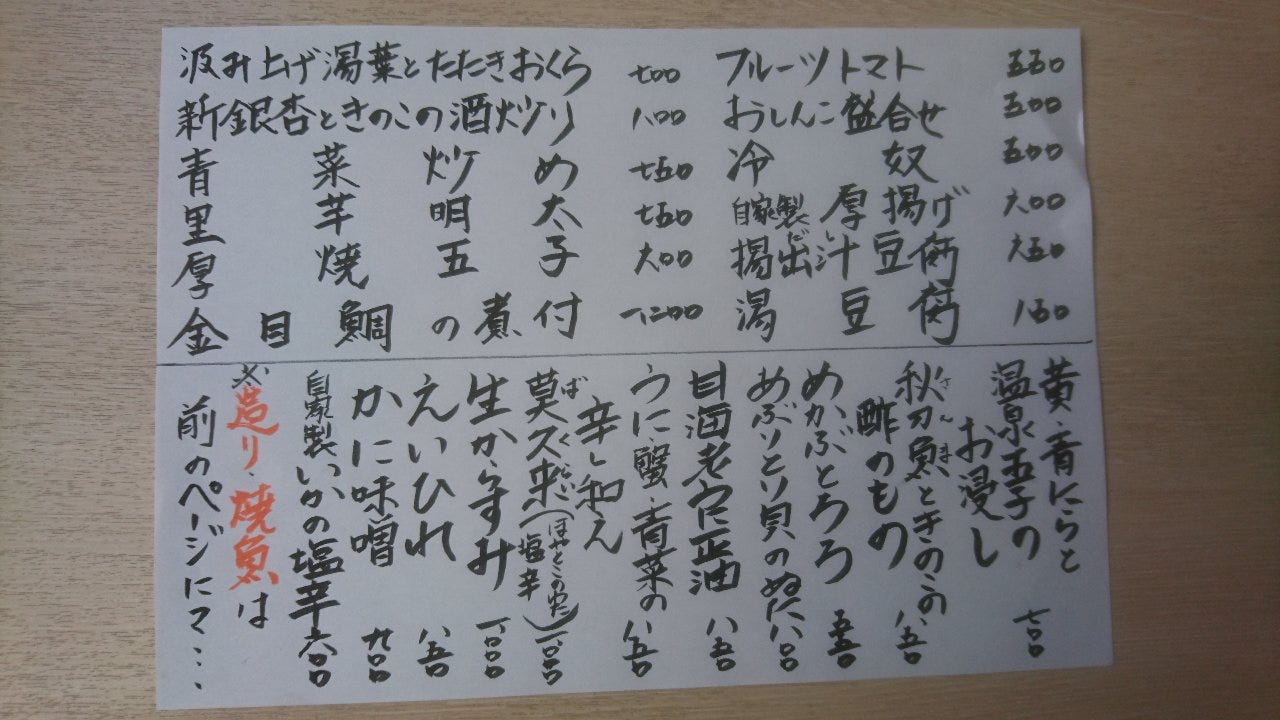 汲み上げ湯葉とたたきおくら 七00
新銀杏ときのこの酒炒り 八00
青菜炒め 七五0
里芋明太 七五0
厚焼玉子 六00
金目鯛の煮付 一、二00
フルーツトマト 五五0
おしんこ盛合せ 五00
冷奴 五00
自家製厚揚げ 六00
揚出汁豆腐 六五0
だし
湯豆腐
黄・青にらと
温泉玉子の
お浸し 七00
秋刀魚ときのこの
さんま
酢のもの 八五0
めかぶとろろ 五五0
めぶとり貝のぬた 八00
甘海老官正油 八五0
うに・蟹・青菜の
辛し和え 八五0
莫久来(ほやとこのわた塩辛) 一、000
ばくらい
生からすみ 一、000
えいひれ 八五0
かに味噌 九00
自家製いかの塩辛 六00
※お造り・焼魚は
前のページにて…